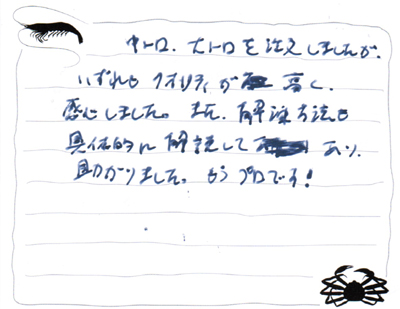 中トロ、大トロを注文しましたが、
いずれもクオリティが高く、
感心しました。また、解凍方法も
具体的に解説してあり、
助かりました。もうプロです!